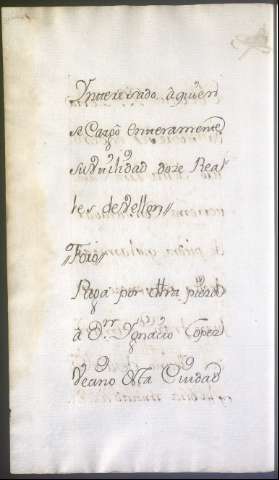 Ynteresado, a quien
se Cargò enteramente
su Vtilidad doze Rea-
les de Vellon//
//Foro//
Paga por otra pieza
à Dn. Ygnacio Lopez
Vecino desta Ciudad